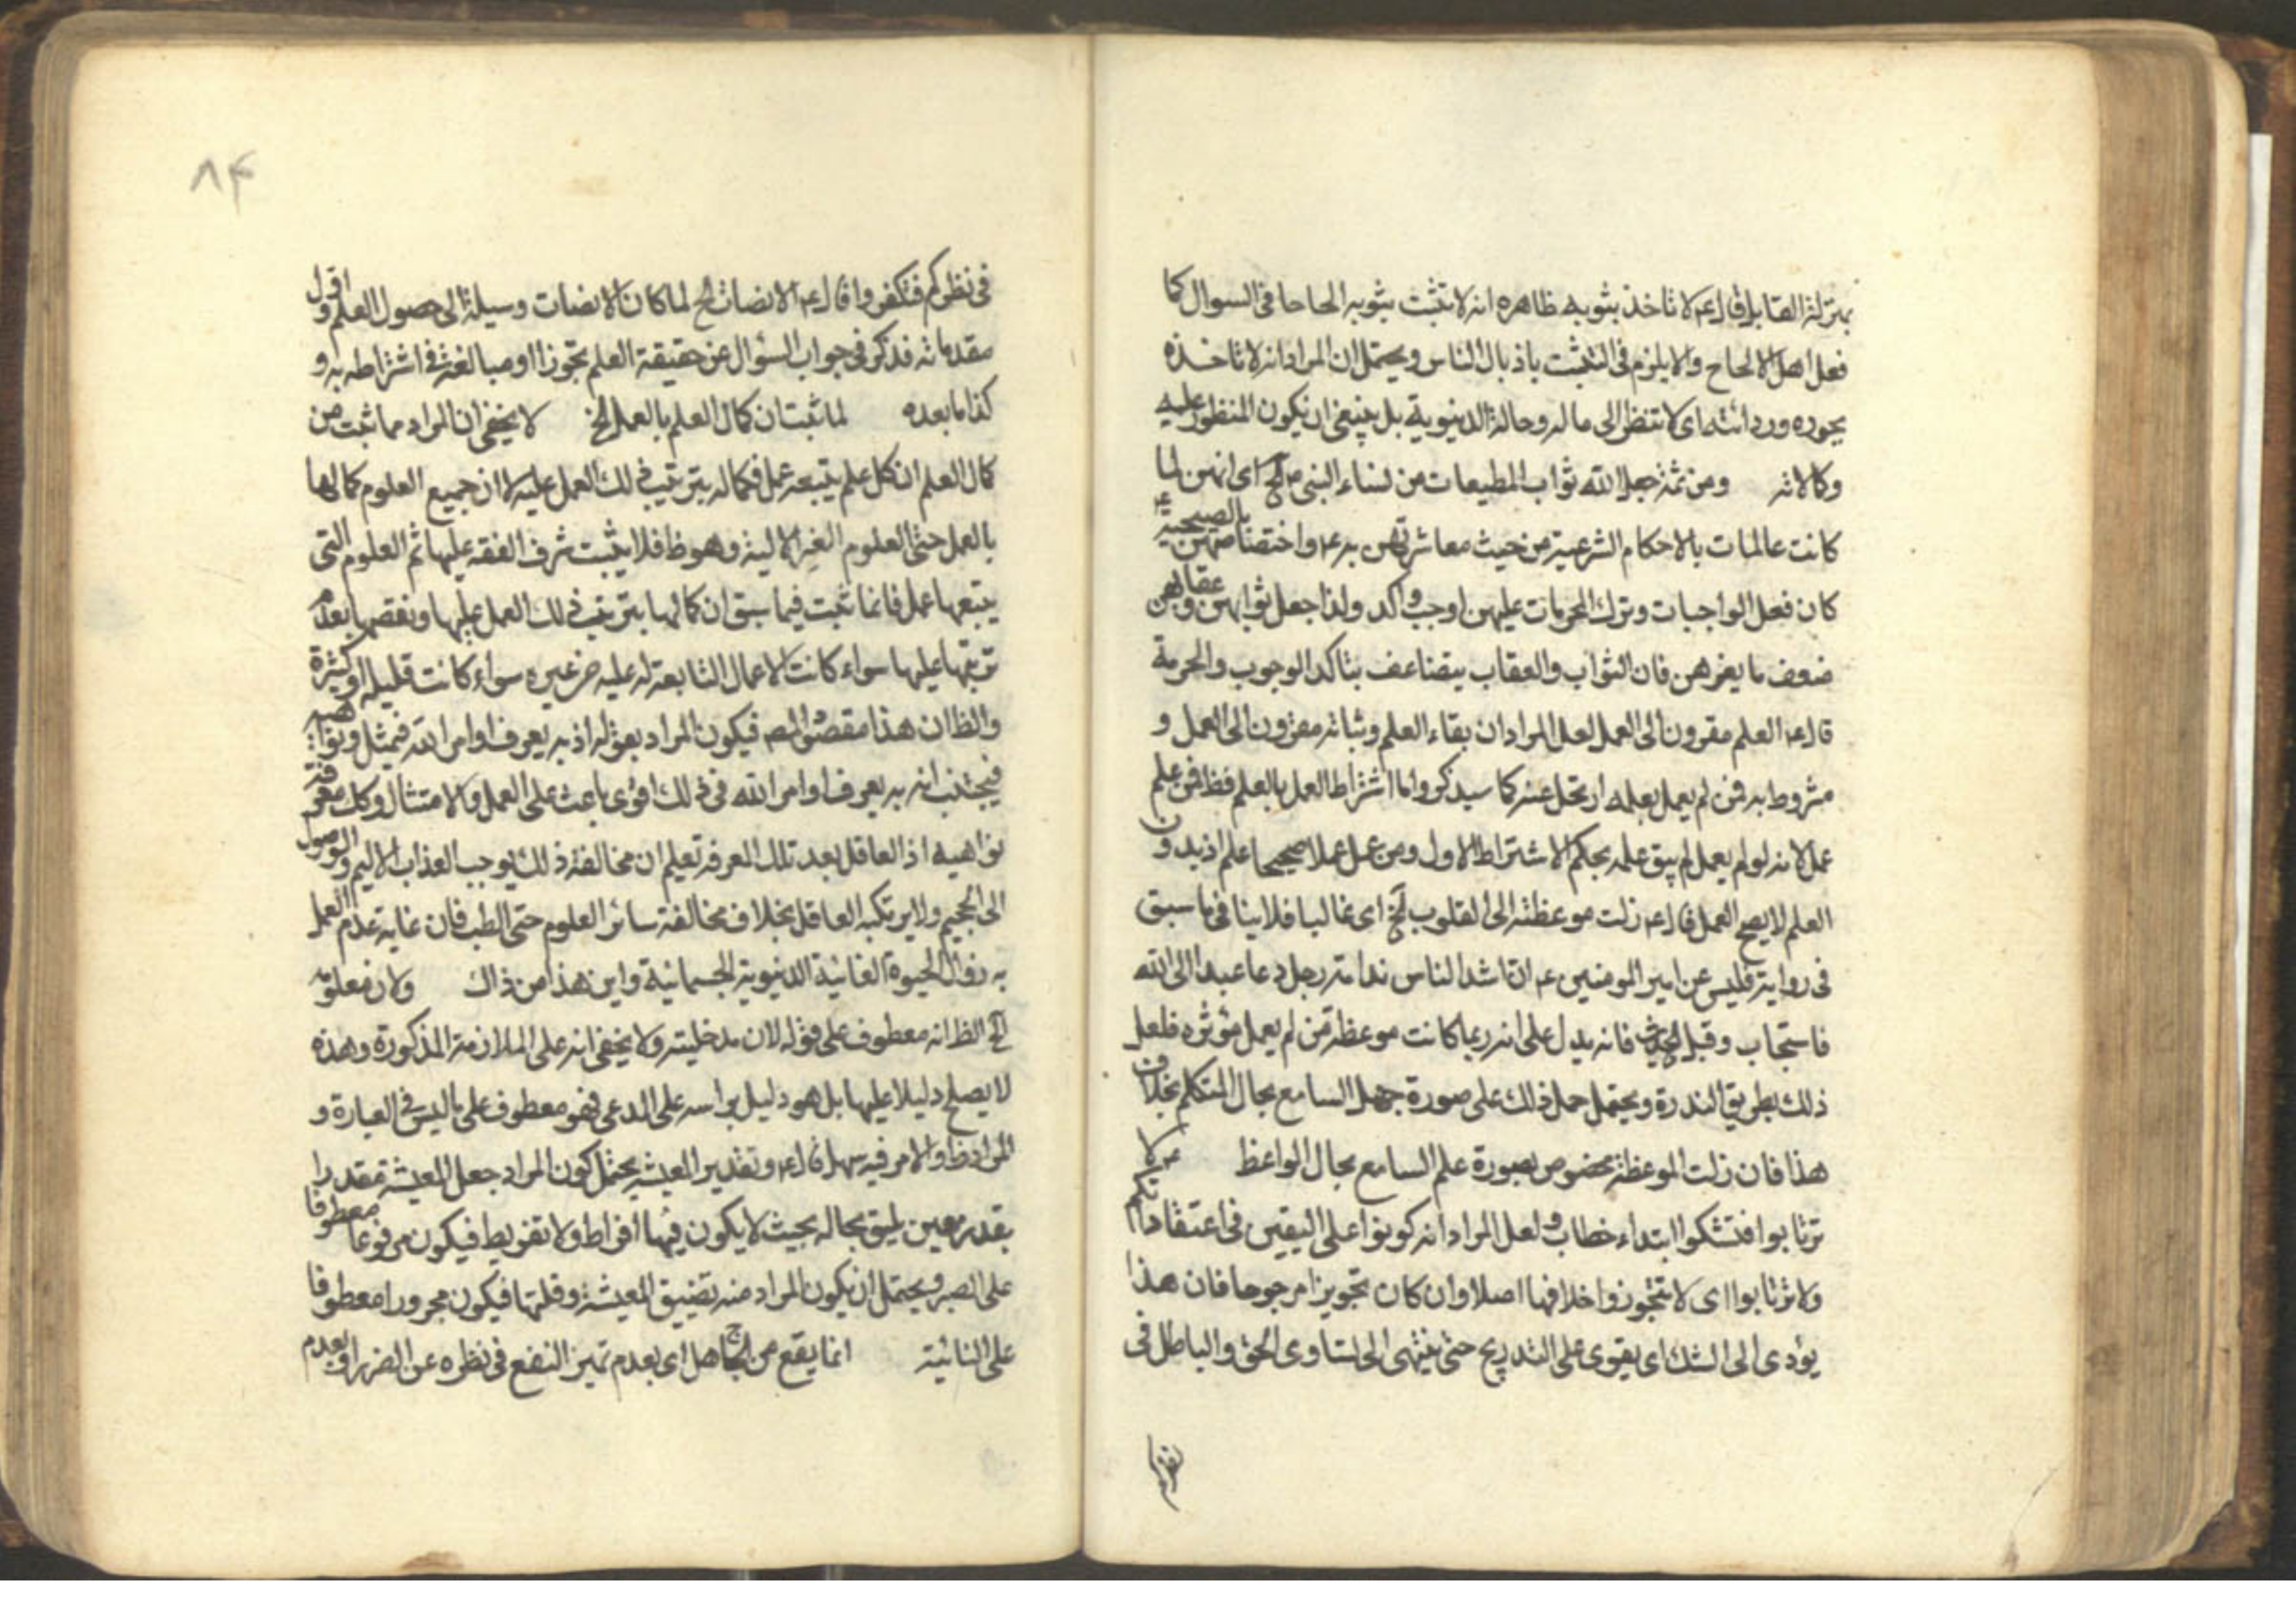 بمنزلة القابل قال ع م لا تاخذ بثوبه ظاهره انه لا تثبت بثوبه الحاحا فى السوال كما
فعل اهل الالحاح والا يلزم فى التشبث باذيال الناس ويحتمل ان المراد انه لا تاخذه
بجوده وردائته اى لا تنظر الى ماله وحاله الدنيوية بل ينبغى ان يكون المنظور عليه
وكمالاته ومن ثمة جعل الله ثواب المطيعات من نساء النبى ص الخ اى انهن لما
كانت عالمات بالاحكام الشرعية من حيث معاشرتهن به ع م واختصاصهن بالصحبة
كان فعل الواجبات وترك المحرمات عليهن اوجب واكد ولذا جعل ثوابهن وعقابهن
ضعف ما يغرهن فان الثواب والعقاب يتضاعف بتاكد الوجوب والحرمة
قال ع م العلم مقرون الى العمل لعل المراد ان بقاء العلم وثباته مقرون الى العمل و
مشروط به فمن لم يعمل بعلمه ارتحل عنه كما سيذكر واما اشتراط العمل بالعلم فظ فمن علم
عمل لانه لو لم يعمل لم يبق علمه بحكم الاشتراط الاول ومن عمل عملا صحيحا علم اذ بدون
العلم لا يصح العمل قال ع م زلت موعظته الى القلوب الخ اى غالبا فلا ينافى ما سبق
فى رواية قليس عن امير المومنين ع م ان اشد الناس ندامته رجل دعا عبدا الى الله
فاستجاب وقبل الحديث فانه يدل على انه ربما كانت موعظة من لم يعمل مؤثره فلعل
ذلك بطريق الندرة ويحتمل حمل ذلك على صورة جهل السامع بحال المتكلم بخلاف
هذا فان زلت الموعظة مخصوص بصورة علم السامع بحال الواعظ ع م لا
ترتابوا فتشكوا ابتداء خطاب ولعل المراد انه كونوا على اليقين فى اعتقاداتكم
ولا ترتابوا اى لا تتجوزوا خلافها اصلا وان كان تجويزا مرجوحا فان هذا
يؤدى الى الشك اى يقوى على التدريج حتى ينتهى الى تساوى الحق والباطل فى
٨۴
فى نظركم فتكفروا قال ع م الانصات الخ لما كان الانصات وسيلة الى حصول العلم و اقول
مقدماته فذكر فى جواب السؤال عن حقيقة العلم تجوزا او مبالغة فى اشتراطه به و
كذا ما بعده لما ثبت ان كمال العلم بالعمل الخ لا يخفى ان المراد مما ثبت من
كمال العلم ان كل علم يتبعه عمل فكماله بترتيب ذلك العمل عليه لا ان جميع العلوم كمالها
بالعمل حتى العلوم الغير الالية وهو ظ فلا يثبت شرف الفقه عليها ثم العلوم التى
يتبعها عمل فانما ثبت فيما سبق ان كمالها بترتيب ذلك العمل عليها ونقصها بعدم
ترتبها عليها سواء كانت الاعمال التابعة له عليه من غيره سواء كانت قليله او كثيرة
والظ ان هذا مقصود المص فيكون المراد بقوله اذ به يعرف اوامر الله فيمتثل ونواهيه
فيجتنب انه به يعرف اوامر الله فى ذلك اقوى باعث على العمل والامتثال وكل معرفة
نواهيه اذ العاقل بعد تلك المعرفة تعلم ان مخالفة ذلك يوجب العذاب الاليم والوصول
الى الجحيم ولا يرتكبه العاقل بخلاف مخالفة سائر العلوم حتى الطب فان غاية عدم العمل
به زوال الحيوة الفانية الدنيوية الجسمانية واين هذا من ذاك ولان معلومه
الخ الظ انه معطوف على قوله لان مدخليته ولا يخفى انه على الملازمة المذكورة وهذه
لا يصلح دليلا عليها بل هو دليل براسه على المدعى فهو معطوف على ما ليس فى العبارة و
المراد ظ والامر فيه سهل قال ع م وتقدير المعيشه يحتمل كون المراد جعل المعيشة مقدرا
بقدر معين يليق بحاله بحيث لا يكون فيها افراط ولا تفريط فيكون مرفوعا معطوفا
على الصبر ويحتمل ان يكون المراد منه تضييق المعيشة وقلتها فيكون مجرورا معطوفا
على النائبة انما يقع من الجاهل اى بعدم تميز النفع فى نظره عن الضرر او بعدم